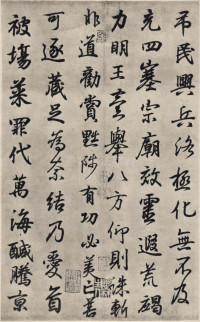 吊民興兵洛極化無不及
充四塞宗廟效靈遐荒竭
力明王言舉八方仰則誅斬
非道勸賞黜陟有功必美亡善
可逐藏足為奈結乃愛育
被場菜罪代萬海鹹騰京